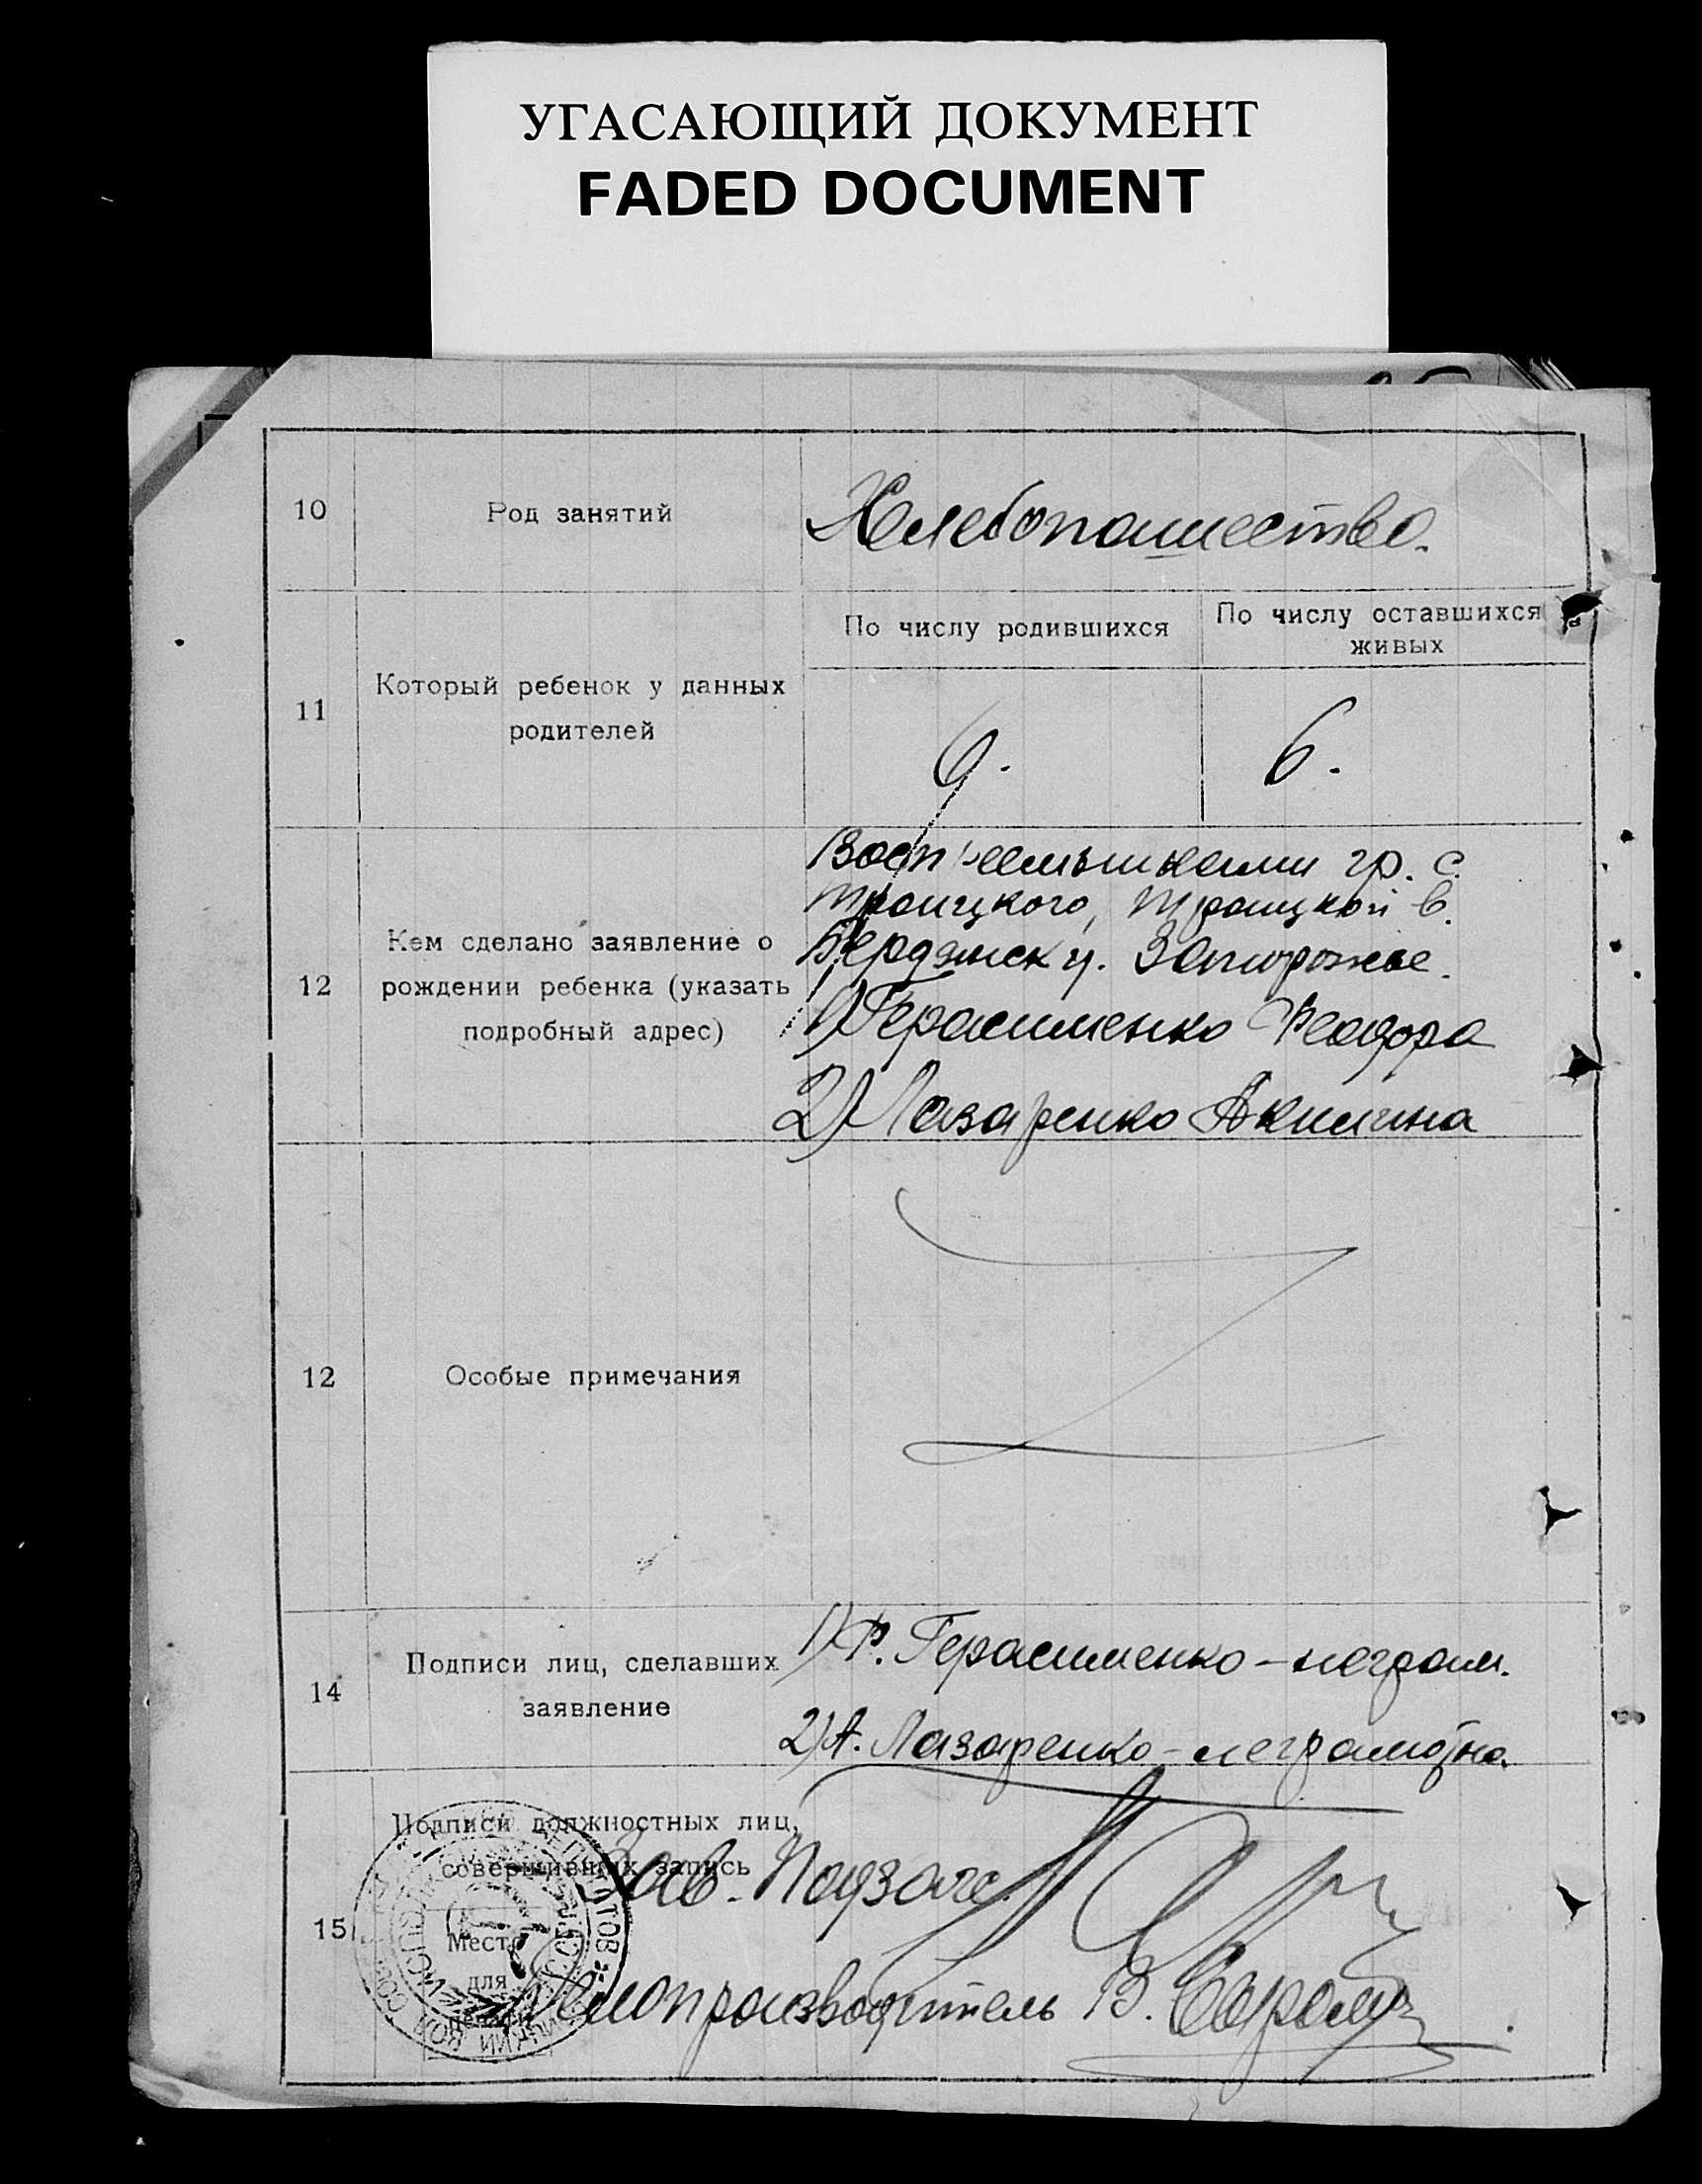 УГАСАЮЩИЙ ДОКУМЕНТ
FADED DOCUMENT
10
Род занятий
Хлебопашество.
11
Который ребенок у данных
родителей
По числу родившихся
По числу оставшихся
живых
9.
6.
12
Кем сделано заявление о
рождении ребенка (указать
подробный адрес)
гр. с.
Троицкого, Троицкой в.
Бердянск у. Запорожье.
1) Герасименко Феодора
2) Лазаренко Акилина
12
Особые примечания
14
Подписи лиц, сделавших
заявление
1) Ф. Герасименко – неграм.
2) А. Лазаренко – неграмотна.
15
Подписи должностных лиц,
совершивших запись
Место
для
печати
Зав. Подзаг
Делопроизводитель В.